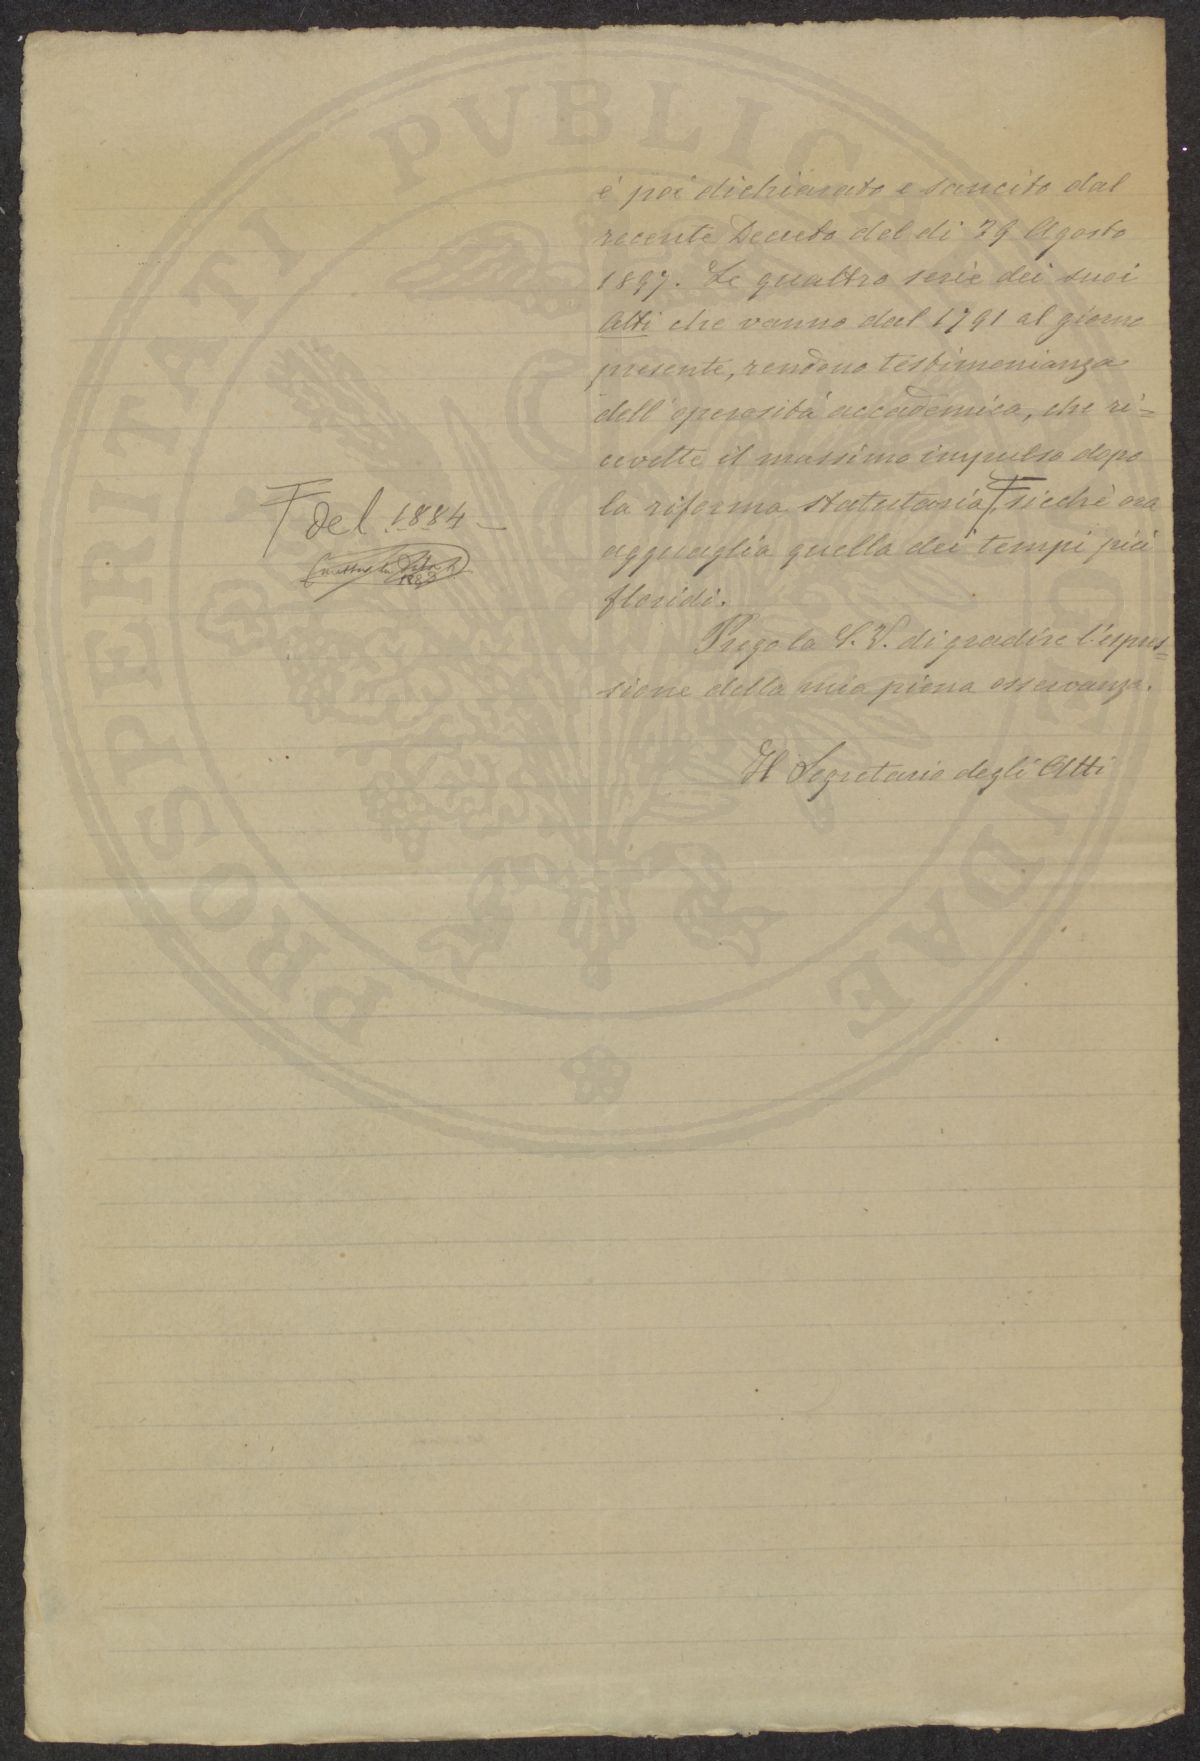 PROSPERITATI PVBLICAE
é poi dichiarato e sancito dal
recente Decreto del di 29 Agosto
1897. Le quattro serie dei suoi
Atti che vanno dal 1791 al giorno
presente, rendono testimonianza
dell'operosità accademica, che ri=
cevette il massimo impulso dopo
la riforma statutaria Ŧ, sicchè ora
agguaglia quella dei tempi più
floridi.
Ŧ del 1884 —
1883
Prego la S. V. di gradire l'espres=
sione della mia piena osservanza.
Il Segretario degli Atti